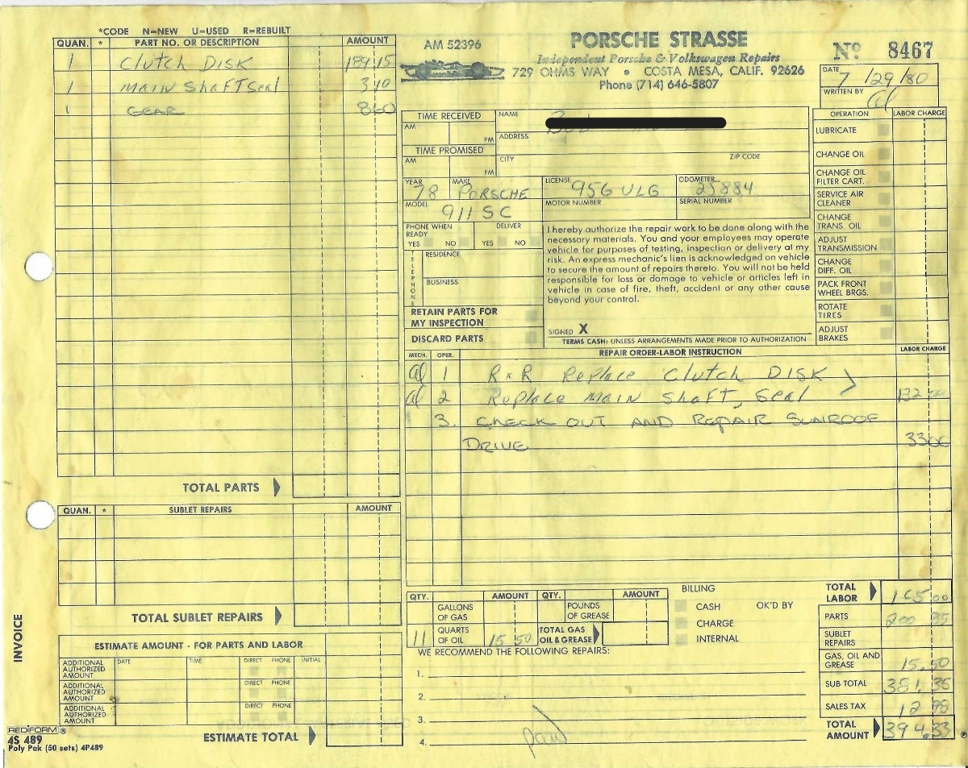 *CODE N=NEW U=USED R=REBUILT
QUAN. * PART NO. OR DESCRIPTION AMOUNT
1 Clutch DISK 189 15
1 MAIN Shaft Seal 3 10
1 GEAR 8 60
TOTAL PARTS
QUAN. * SUBLET REPAIRS AMOUNT
TOTAL SUBLET REPAIRS
ESTIMATE AMOUNT - FOR PARTS AND LABOR
ADDITIONAL AUTHORIZED AMOUNT DATE TIME DIRECT PHONE INITIAL
ADDITIONAL AUTHORIZED AMOUNT DIRECT PHONE
ADDITIONAL AUTHORIZED AMOUNT DIRECT PHONE
ESTIMATE TOTAL
INVOICE
REDIFORM ®
4S 489
Poly Pak (50 sets) 4P489
AM 52396
PORSCHE STRASSE
Independent Porsche & Volkswagen Repairs
729 OHMS WAY • COSTA MESA, CALIF. 92626
Phone (714) 646-5807
No 8467
DATE 7/29/80
WRITTEN BY al
TIME RECEIVED
AM PM
TIME PROMISED
AM PM
NAME
ADDRESS
CITY ZIP CODE
YEAR 78 MAKE PORSCHE LICENSE 956 ULG ODOMETER 25884
MODEL 911 SC MOTOR NUMBER SERIAL NUMBER
PHONE WHEN READY DELIVER
YES NO YES NO
TELEPHONE
RESIDENCE
BUSINESS
RETAIN PARTS FOR MY INSPECTION
DISCARD PARTS
I hereby authorize the repair work to be done along with the
necessary materials. You and your employees may operate
vehicle for purposes of testing, inspection or delivery at my
risk. An express mechanic's lien is acknowledged on vehicle
to secure the amount of repairs thereto. You will not be held
responsible for loss or damage to vehicle or articles left in
vehicle in case of fire, theft, accident or any other cause
beyond your control.
SIGNED X
TERMS CASH: UNLESS ARRANGEMENTS MADE PRIOR TO AUTHORIZATION
OPERATION LABOR CHARGE
LUBRICATE
CHANGE OIL
CHANGE OIL FILTER CART.
SERVICE AIR CLEANER
CHANGE TRANS. OIL
ADJUST TRANSMISSION
CHANGE DIFF. OIL
PACK FRONT WHEEL BRGS.
ROTATE TIRES
ADJUST BRAKES
MECH. OPER. REPAIR ORDER-LABOR INSTRUCTION LABOR CHARGE
al 1 R&R Replace Clutch DISK
al 2 Replace MAIN Shaft, Seal 132 00
3. CHECK OUT AND REPAIR SUNROOF
DRIVE 33 00
QTY. AMOUNT QTY. AMOUNT
GALLONS OF GAS POUNDS OF GREASE
11 QUARTS OF OIL 15 50 TOTAL GAS OIL & GREASE
BILLING
CASH OK'D BY
CHARGE
INTERNAL
WE RECOMMEND THE FOLLOWING REPAIRS:
1.
2.
3.
4.
paid
TOTAL LABOR 165 00
PARTS 200 85
SUBLET REPAIRS
GAS, OIL AND GREASE 15.50
SUB TOTAL 381,35
SALES TAX 12 98
TOTAL AMOUNT 394,33